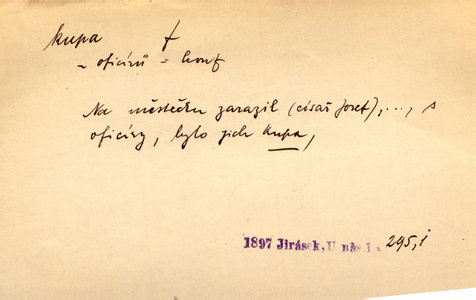 kupa f
~ oficírů = houf
Na městečku zarazil (císař Josef), ..., s
oficíry, bylo jich kupa,
1897 Jirásek, U nás 1. 295,i